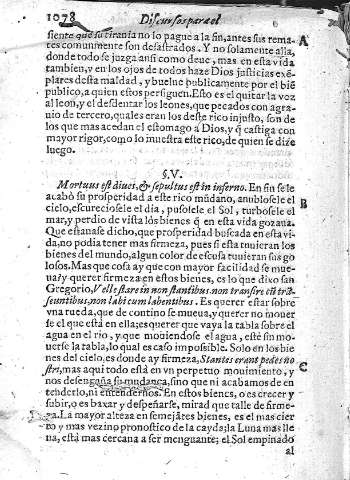 1078 Discursos para el
siente que su tirania no lo pague a la fin, antes sus rema-
tes comunmente son desastrados. Y no solamente alla,
donde todo se juzga ansi como deue, mas en esta vida
tambien, y en los ojos de todos haze Dios justicias exẽ-
plares desta maldad, y buelue publicamente por el biẽ
publico, a quien estos persiguen. Esto es el quitar la voz
al leon, y el desdentar los leones, que pecados con agra-
uio de tercero, quales eran los deste rico injusto, son de
los que mas acedan el estomago a Dios, y q̃ castiga con
mayor rigor, como lo muestra este rico, de quien se dize
luego.
A
§. V.
Mortuus est diues, & sepultus est in inferno. En fin se le
acabò su prosperidad a este rico mũdano, anublosele el
cielo, escureciosele el dia, pusosele el Sol, turbosele el
mar, y perdio de vista los bienes q̃ en esta vida gozaua.
Que estauase dicho, que prosperidad buscada en esta vi-
da, no podia tener mas firmeza, pues si esta tuuieran los
bienes del mundo, algun color de escusa tuuieran sus go
losos. Mas que cosa ay que con mayor facilidad se mue-
ua? y querer firmeza en estos bienes, es lo que dixo san
Gregorio, Velle stare in non stantibus, non transire cũ trã-
seuntibus, non labi cum labentibus. Es querer estar sobre
vna rueda, que de contino se mueua, y querer no mouer
se el que està en ella; es querer que vaya la tabla sobre el
agua en el rio, y que mouiendose el agua, estè sin mo-
uerse la tabla, lo qual es caso impossible. Solo en los bie-
nes del cielo, es donde ay firmeza, Stantes erant pedes no
stri, mas aqui todo està en vn perpetuo mouimiento, y
nos desengaña su mudança, sino que ni acabamos de en
tenderlo, ni entendernos. En estos bienes, o es crecer y
subir, o es baxar y despeñarse, mirad que talle de firme-
za. La mayor alteza en semejãtes bienes, es el mas cier
no y mas vezino pronostico de la cayda; la Luna mas lle
na, està mas cercana a ser menguante; el Sol empinado
al
B
C